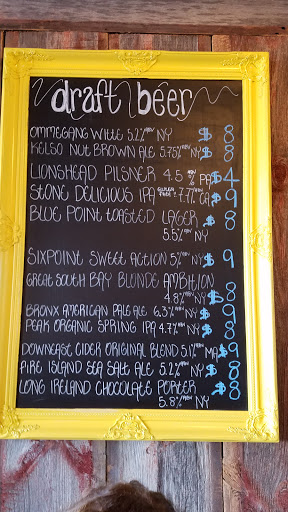 draft beer
OMMEGANG WITTE 5.2% ABV NY $8
KELSO NUT BROWN ALE 5.75% ABV NY $8
LIONSHEAD PILSNER 4.5% ABV PA $4
STONE DELICIOUS IPA GLUTEN FREE! 7.7% CA $9
BLUE POINT TOASTED LAGER $8
5.5% ABV NY
SIXPOINT SWEET ACTION 5% ABV NY $9
GREAT SOUTH BAY BLONDE AMBITION
4.8% ABV NY $8
BRONX AMERICAN PALE ALE 6.3% ABV NY $9
PEAK ORGANIC SPRING IPA 4.7% ABV NY $8
DOWNEAST CIDER ORIGINAL BLEND 5.1% ABV MA $9
FIRE ISLAND SEA SALT ALE 5.2% ABV NY $8
LONG IRELAND CHOCOLATE PORTER $8
5.8% ABV NY